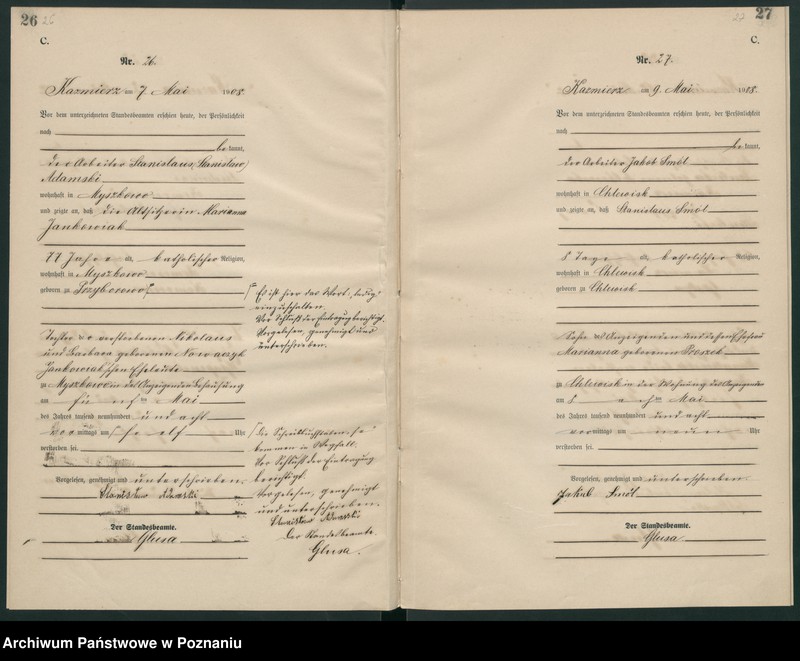 26 26
C.
Nr. 26.
Kazmierz am 7. Mai 1908.
Vor dem unterzeichneten Standesbeamten erschien heute, der Persönlichkeit
nach
be kannt,
der Arbeiter Stanislaus (Stanislaw)
Adamski
wohnhaft in Myszkowo
und zeigte an, daß die Altsitzerin Marianna
Jankowiak
77 Jahre a, katholischer Religion,
wohnhaft in Myszkowo
geboren zu
Tochter der verstorbenen Nikolaus
und Barbara geborenen Nowaczyk
Jankowiak'schen Eheleute
zu Myszkowo in des Anzeigenden Behausung
am fünften Mai
des Jahres tausend neunhundert und acht
vormittags um elf Uhr
verstorben sei.
Vorgelesen, genehmigt und unterschrieben.
Stanisław Adamski
Der Standesbeamte.
Glusa
Es ist hier das Wort "ledig"
einzuschalten.
Vor Schluß der Eintragung berichtigt.
Vorgelesen, genehmigt und
unterschrieben.
kommen in Wegfall.
Vor Schluß der Eintragung
berichtigt.
Vorgelesen, genehmigt
und unterschrieben.
Stanisław Adamski
Der Standesbeamte.
Glusa.
27 27
C.
Nr. 27.
Kazmierz am 9. Mai 1908.
Vor dem unterzeichneten Standesbeamten erschien heute, der Persönlichkeit
nach
be kannt,
der Arbeiter Jakob Smól
wohnhaft in Chlewisk
und zeigte an, daß Stanislaus Smól
8 Tage a, katholischer Religion,
wohnhaft in Chlewisk
geboren zu Chlewisk
Sohn des Anzeigenden und dessen Ehefrau
Marianna geborenen
zu Chlewisk in der Wohnung des Anzeigenden
am achten Mai
des Jahres tausend neunhundert und acht
vormittags um neun Uhr
verstorben sei.
Vorgelesen, genehmigt und unterschrieben.
Jakub Smól
Der Standesbeamte.
Glusa
Archiwum Państwowe w Poznaniu